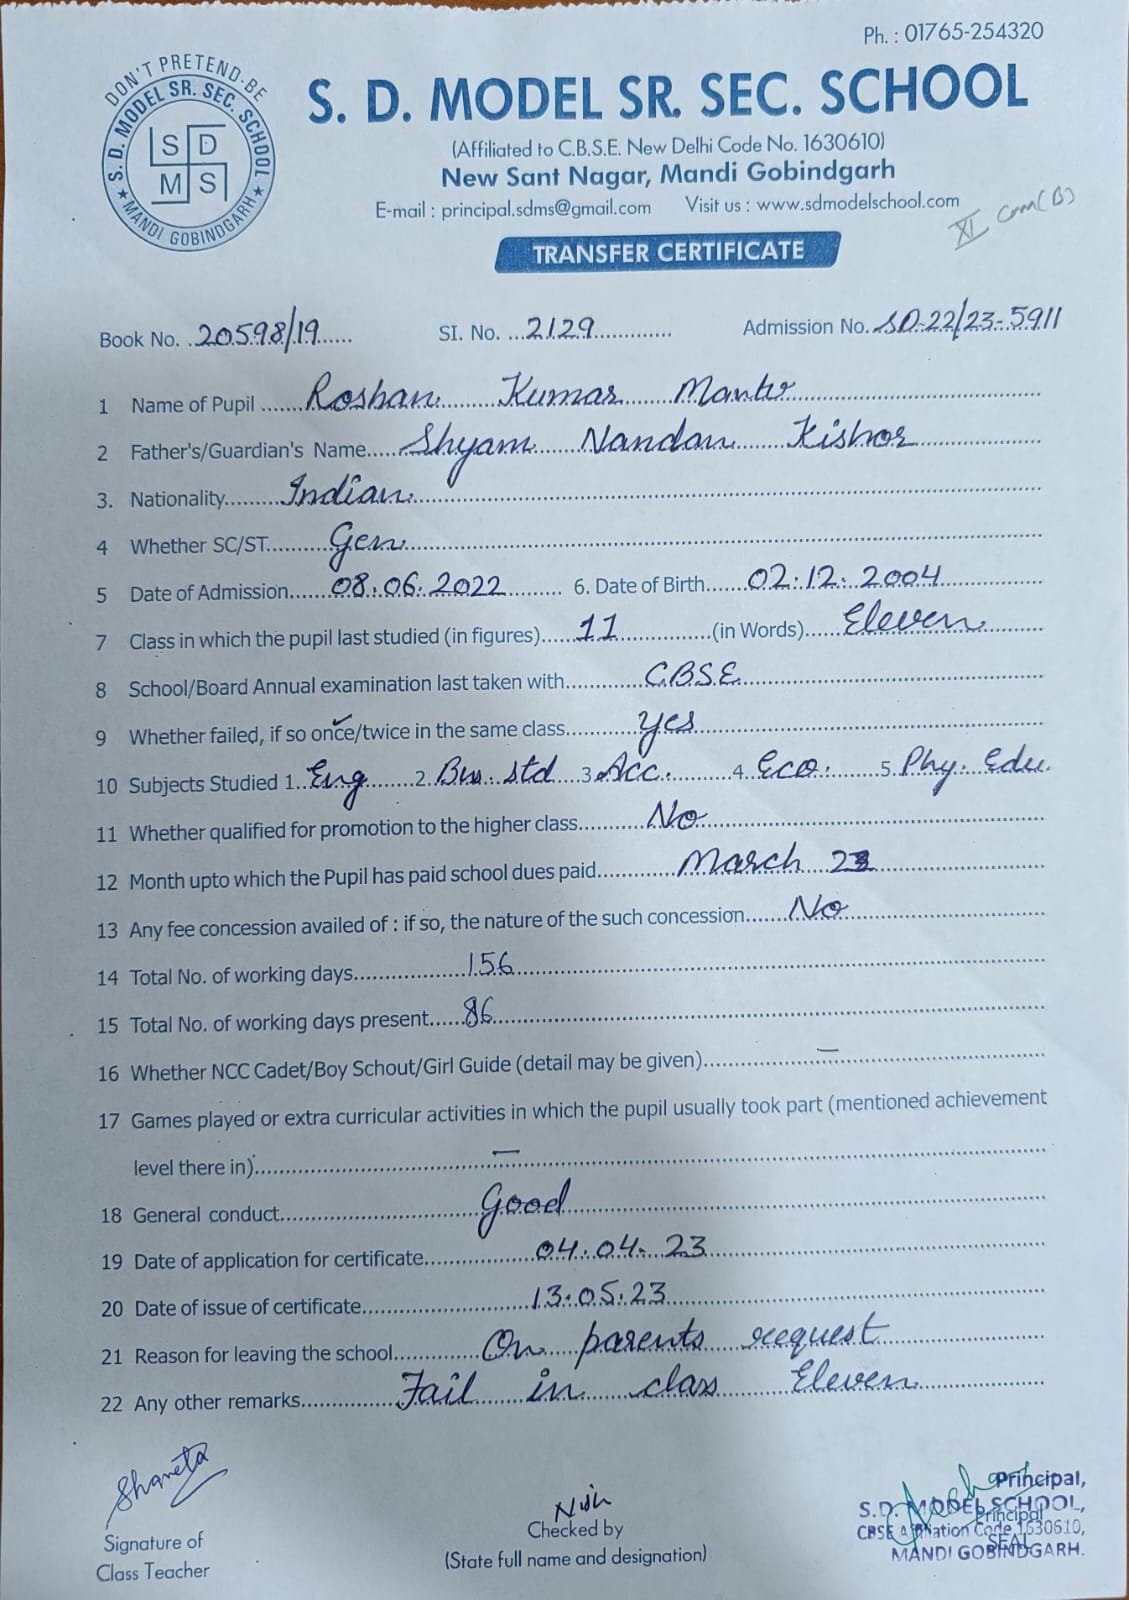 Ph. : 01765-254320
DON'T PRETEND-BE
S. D. MODEL SR. SEC. SCHOOL
★ MANDI GOBINDGARH ★
S D
M S
S. D. MODEL SR. SEC. SCHOOL
(Affiliated to C.B.S.E. New Delhi Code No. 1630610)
New Sant Nagar, Mandi Gobindgarh
E-mail : principal.sdms@gmail.com Visit us : www.sdmodelschool.com
XI Com(B)
TRANSFER CERTIFICATE
Book No. 20598/19 SI. No. 2129 Admission No. SD-22/23-5911
1 Name of Pupil Roshan Kumar
2 Father's/Guardian's Name Shyam Nandan Kishor
3. Nationality Indian
4 Whether SC/ST Gen
5 Date of Admission 08.06.2022 6. Date of Birth 02.12.2004
7 Class in which the pupil last studied (in figures) 11 (in Words) Eleven
8 School/Board Annual examination last taken with C.B.S.E.
9 Whether failed, if so once/twice in the same class yes
10 Subjects Studied 1. Eng 2. Bus. Std 3. Acc. 4. Eco. 5. Phy. Edu.
11 Whether qualified for promotion to the higher class No
12 Month upto which the Pupil has paid school dues paid March 23
13 Any fee concession availed of : if so, the nature of the such concession No
14 Total No. of working days 156
15 Total No. of working days present 86
16 Whether NCC Cadet/Boy Schout/Girl Guide (detail may be given) —
17 Games played or extra curricular activities in which the pupil usually took part (mentioned achievement
level there in) —
18 General conduct Good
19 Date of application for certificate 04.04.23
20 Date of issue of certificate 13.05.23
21 Reason for leaving the school On parents request
22 Any other remarks Fail in class Eleven
Signature of
Class Teacher
Checked by
(State full name and designation)
Principal,
S.D. MODEL SCHOOL,
Principal
CBSE Affiliation Code 1630610,
SEAL
MANDI GOBINDGARH.